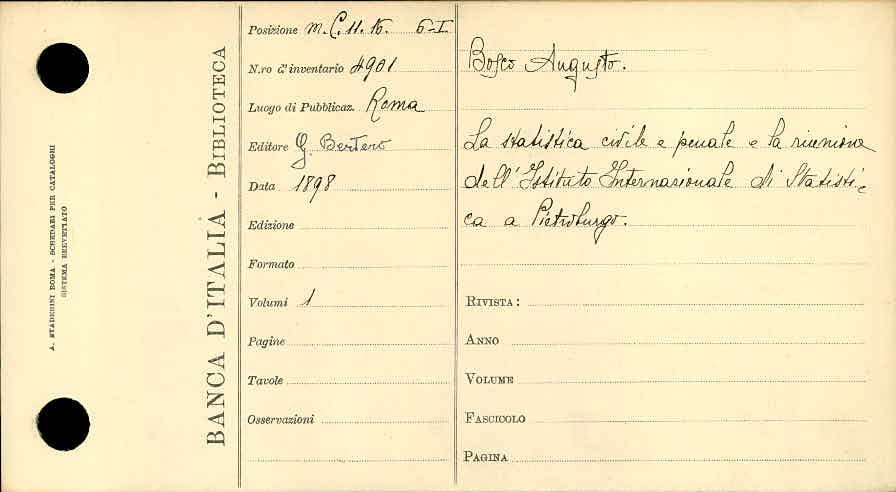 A. STADERINI ROMA - SCHEDARI PER CATALOGHI
SISTEMA BREVETTATO
BANCA D'ITALIA - BIBLIOTECA
Posizione M.C.11.16. 6-I
N.ro d'inventario 4901
Luogo di Pubblicaz. Roma
Editore G. Bertero
Data 1898
Edizione
Formato
Volumi 1
Pagine
Tavole
Osservazioni
Bosco Augusto.
La statistica civile e penale e la riunione
dell'Istituto Internazionale di Statisti-
ca a Pietroburgo.
RIVISTA:
ANNO
VOLUME
FASCICOLO
PAGINA